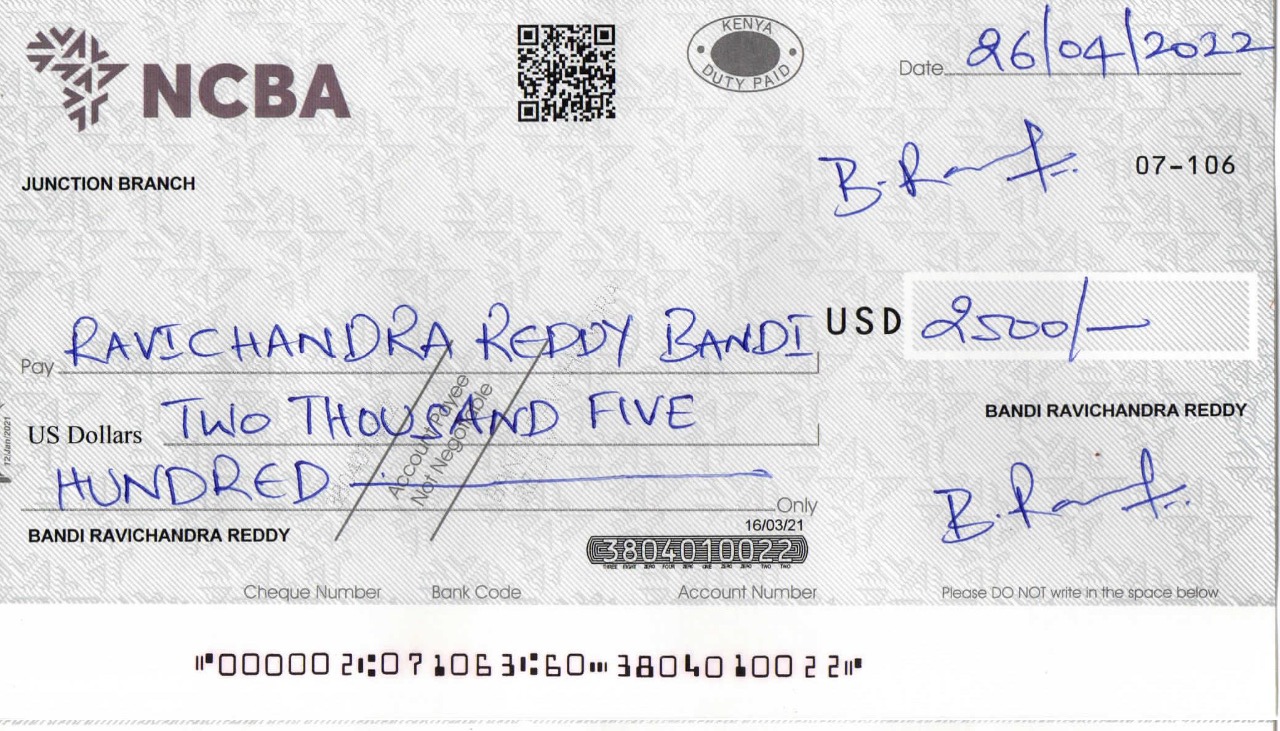 NCBA
KENYA
DUTY PAID
Date 26/04/2022
JUNCTION BRANCH
07-106
Pay RAVICHANDRA REDDY BANDI
USD 2500/-
US Dollars TWO THOUSAND FIVE
BANDI RAVICHANDRA REDDY
HUNDRED
Account Payee
Not Negotiable
Only
12/Jan/2021
BANDI RAVICHANDRA REDDY
16/03/21
3804010022
THREE EIGHT ZERO FOUR ZERO ONE ZERO ZERO TWO TWO
Cheque Number Bank Code Account Number Please DO NOT write in the space below
⑈000002⑆071063⑆60⑉3804010022⑈